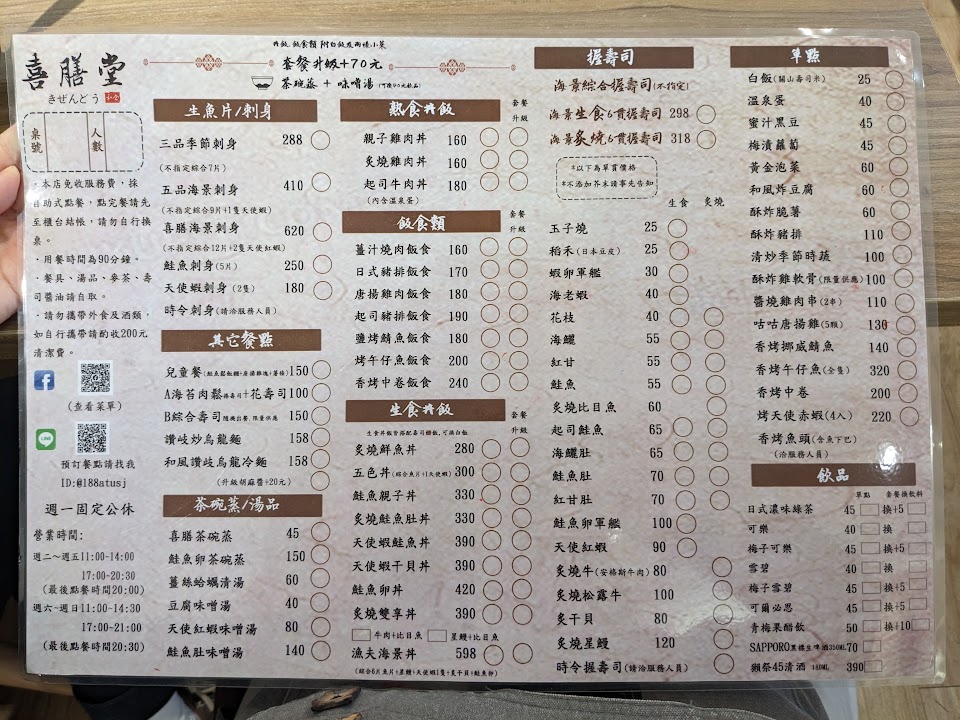 喜膳堂
きぜんどう
桌號
人數
·本店免收服務費，採
自助式點餐，點完餐請先
至櫃台結帳，請勿自行換
桌。
·用餐時間為90分鐘。
·餐具、湯品、麥茶、壽
司醬油請自取。
·請勿攜帶外食及酒類，
如自行攜帶請酌收200元
清潔費。
(查看菜單)
LINE
預訂餐點請找我
ID:@188atusj
週一固定公休
營業時間:
週二~週五11:00-14:00
17:00-20:30
(最後點餐時間20:00)
週六~週日11:00-14:30
17:00-21:00
(最後點餐時間20:30)
丼飯、飯食類 附白飯及兩樣小菜
套餐升級+70元
茶碗蒸 + 味噌湯
生魚片/刺身
三品季節刺身 288
(不指定綜合7片)
五品海景刺身 410
(不指定綜合9片+1隻天使蝦)
喜膳海景刺身 620
(不指定綜合12片+2隻天使紅蝦)
鮭魚刺身(5片) 250
天使蝦刺身 (2隻) 180
時令刺身(請洽服務人員)
其它餐點
兒童餐 150
A海苔肉鬆+花壽司100
B綜合壽司 隨機出餐,限量供應 150
讚岐炒烏龍麵 158
和風讚岐烏龍冷麵 158
(升級胡麻醬+20元)
茶碗蒸/湯品
喜膳茶碗蒸 45
鮭魚卵茶碗蒸 150
薑絲蛤蠣清湯 60
豆腐味噌湯 40
天使紅蝦味噌湯 80
鮭魚肚味噌湯 140
熱食丼飯 套餐升級
親子雞肉丼 160
炙燒雞肉丼 160
起司牛肉丼 180
(內含溫泉蛋)
飯食類 套餐升級
薑汁燒肉飯食 160
日式豬排飯食 170
唐揚雞肉飯食 180
起司豬排飯食 190
鹽烤鯖魚飯食 180
烤午仔魚飯食 200
香烤中卷飯食 240
生食丼飯 套餐升級
生食丼飯皆搭配壽司醋飯,可換白飯
炙燒鮮魚丼 280
五色丼(綜合魚片+1天使蝦) 300
鮭魚親子丼 330
炙燒鮭魚肚丼 330
天使蝦鮭魚丼 390
天使蝦干貝丼 390
鮭魚卵丼 420
炙燒雙享丼 390
牛肉+比目魚 星鰻+比目魚
漁夫海景丼 598
(綜合6片魚片+星鰻+天使蝦1隻+炙干貝+鮭魚卵)
握壽司
海景綜合握壽司(不指定)
海景生食6貫握壽司 298
海景炙燒6貫握壽司 318
*以下為單貫價格
*不添加芥末請事先告知
生食 炙燒
玉子燒 25
稻禾(日本豆皮) 25
蝦卵軍艦 30
海老蝦 40
花枝 40
海鱺 55
紅甘 55
鮭魚 55
炙燒比目魚 60
起司鮭魚 65
海鱺肚 65
鮭魚肚 70
紅甘肚 70
鮭魚卵軍艦 100
天使紅蝦 90
炙燒牛(安格斯牛肉) 80
炙燒松露牛 100
炙干貝 80
炙燒星鰻 120
時令握壽司(請洽服務人員)
單點
白飯(關山壽司米) 25
溫泉蛋 40
蜜汁黑豆 45
梅漬蘿蔔 45
黃金泡菜 60
和風炸豆腐 60
酥炸脆薯 60
酥炸豬排 110
清炒季節時蔬 100
酥炸雞軟骨(限量供應) 100
醬燒雞肉串(2串) 110
咕咕唐揚雞(5顆) 130
香烤挪威鯖魚 140
香烤午仔魚(全隻) 320
香烤中卷 200
烤天使赤蝦(4入) 220
香烤魚頭(含魚下巴)
(洽服務人員)
飲品
單點 套餐換飲料
日式濃味綠茶 45 換+5
可樂 40 換
梅子可樂 45 換+5
雪碧 40 換
梅子雪碧 45 換+5
可爾必思 45 換+5
青梅果醋飲 50 換+10
SAPPORO黑標生啤酒350ML 70
獺祭45清酒 180ML 390